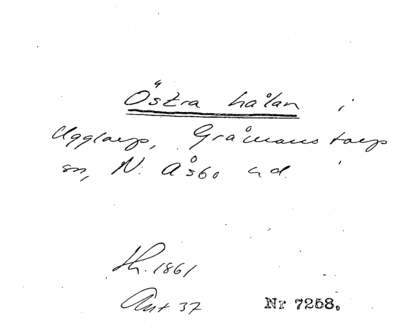 Östra hålan i
Uggltorp, Gråmanstorps
sn, N. Åsbo hd.
Sk. 1861
Ant 37 Nr 7258.